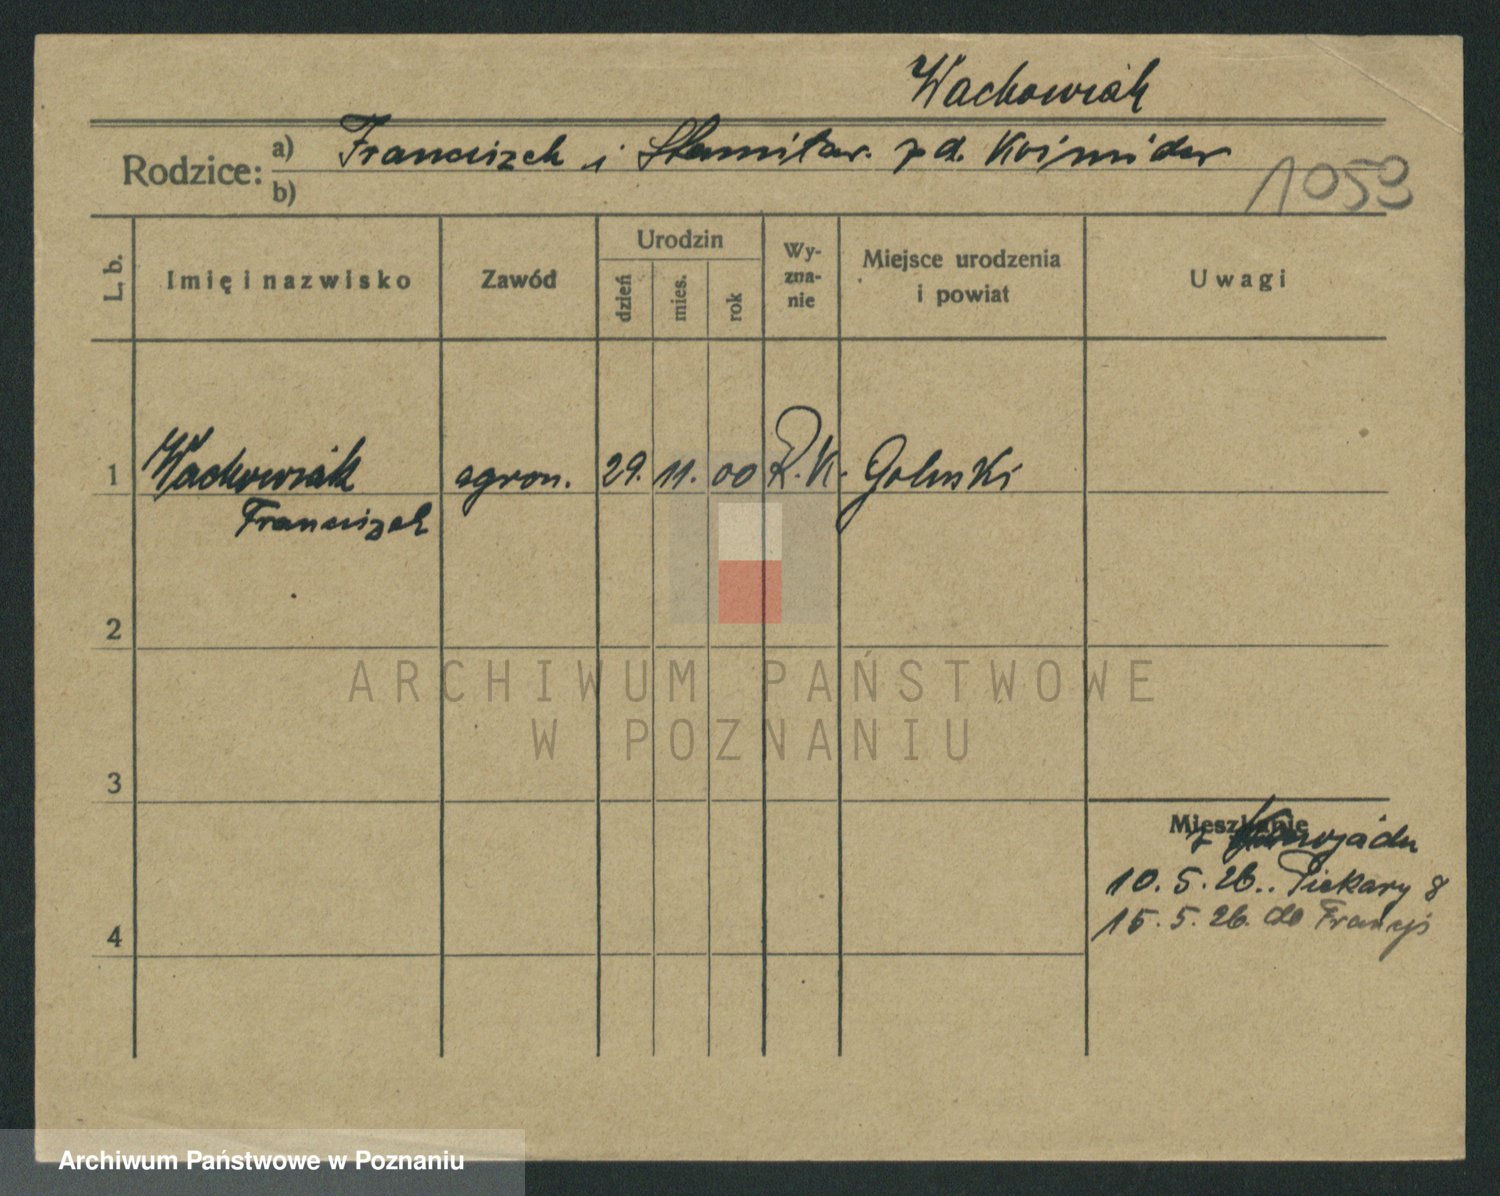 Wachowiak
Rodzice:
a) Franciszek i Stanisław. z d. Koźmider
b)
1053
L. b.
Imię i nazwisko
Zawód
Urodzin
dzień
mies.
rok
Wy-
zna-
nie
Miejsce urodzenia
i powiat
Uwagi
1 Wachowiak agron. 29. 11. 00 R.K. Goluski
Franciszek
2
3
4
Mieszkanie
z
10. 5. 26.. Piekary 8
15. 5. 26. do Francji
ARCHIWUM PAŃSTWOWE
W POZNANIU
Archiwum Państwowe w Poznaniu